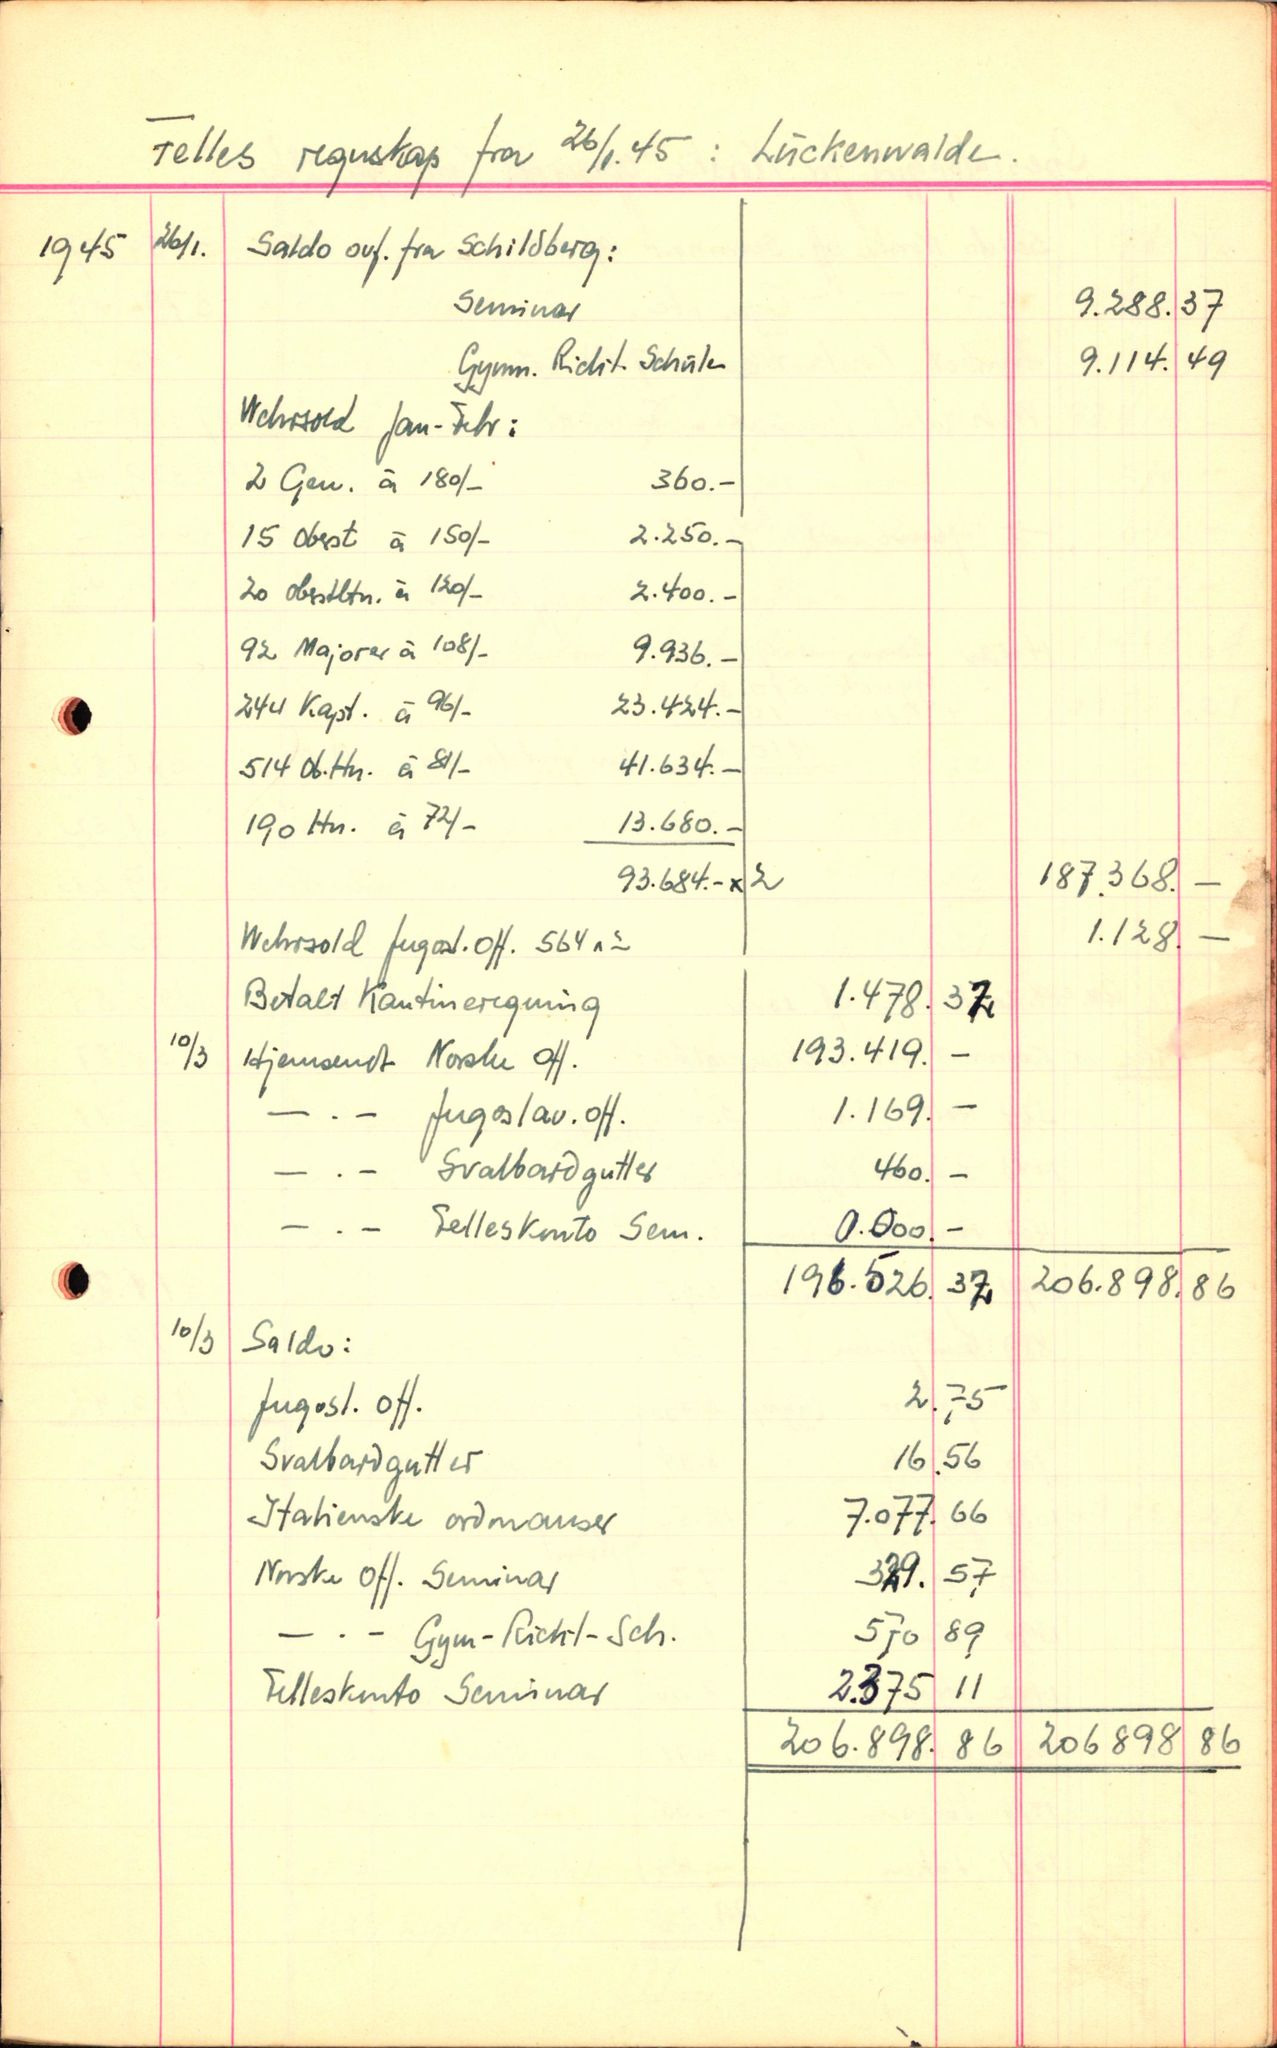 Felles regnskap fra 26/1.45 : Lückenwalde.
1945 26/1. Saldo ovf. fra Schildberg:
Seminar 9.288.37
Gymn. Richt. Schüle 9.114.49
Wehrsold Jan-Febr:
2 Gen. à 180/- 360.-
15 Oberst à 150/- 2.250.-
20 Oberstltn. à 120/- 2.400.-
92 Majorer à 108/- 9.936.-
244 Kapt. à 96/- 23.424.-
514 Ob.ltn. à 81/- 41.634.-
190 ltn. à 72/- 13.680.-
93.684.- x 2 187.368.-
Wehrsold Jugosl. Off. 564 x 2 1.128.-
Betalt Kantineregning 1.478.37
10/3 Hjemsendt Norske Off. 193.419.-
— . — Jugoslav. off. 1.169.-
— . — Svalbardgutter 460.-
— . — Felleskonto Sem. 0.000.-
196.526.37 206.898.86
10/3 Saldo:
Jugosl. off. 2.75
Svalbardgutter 16.56
Italienske ordonanser 7.077.66
Norske Off. Seminar 329.57
— . — Gym-Richt-Sch. 570 89
Felleskonto Seminar 2.375 11
206.898.86 206 898 86